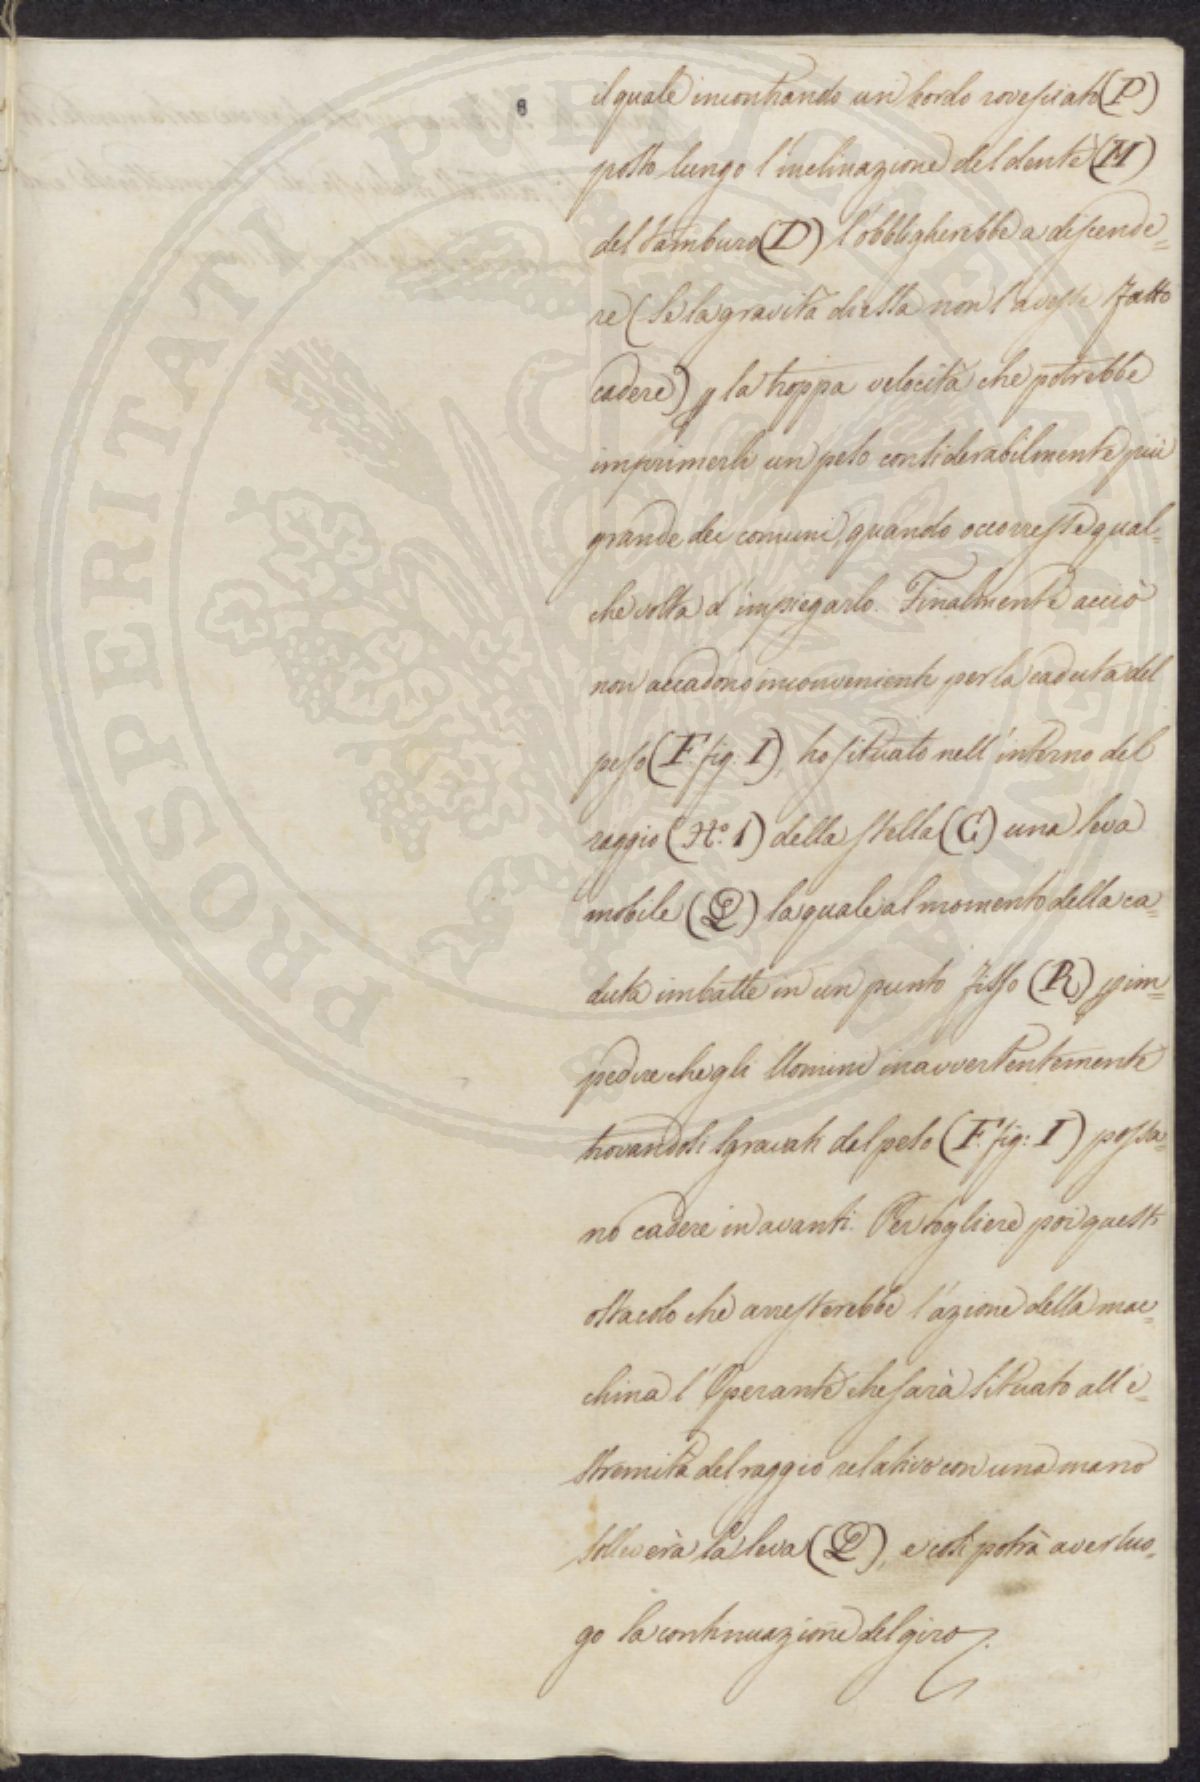 8
il quale incontrando un bordo rovesciato (P)
posto lungo l'inclinazione del dente (M)
del Tamburo (D) l'obbligherebbe a discende=
re (se la gravità di essa non l'avesse fatto
cadere) p la troppa velocità che potrebbe
imprimerli un peso considerabilmente più
grande dei comuni, quando occorresse qual=
che volta d'impiegarlo. Finalmente acciò
non accadono inconvenienti per la caduta del
peso (F. fig. I), ho situato nell'interno del
raggio (N.º 1) della stella (C) una leva
mobile (Q) la quale al momento della ca=
duta imbatte in un punto fisso (R) p im=
pedire che gli Uomini inavvertentemente
trovandosi sgravati del peso (F. fig: I) possa=
no cadere in avanti. Per togliere poi questo
ostacolo che arresterebbe l'azione della mac=
china l'Operante che sarà situato all'e=
stremità del raggio relativo con una mano
solleverà la leva (Q), e così potrà aver luo=
go la continuazione del giro.
PROSPERITATI PUBLICAE AUGENDAE